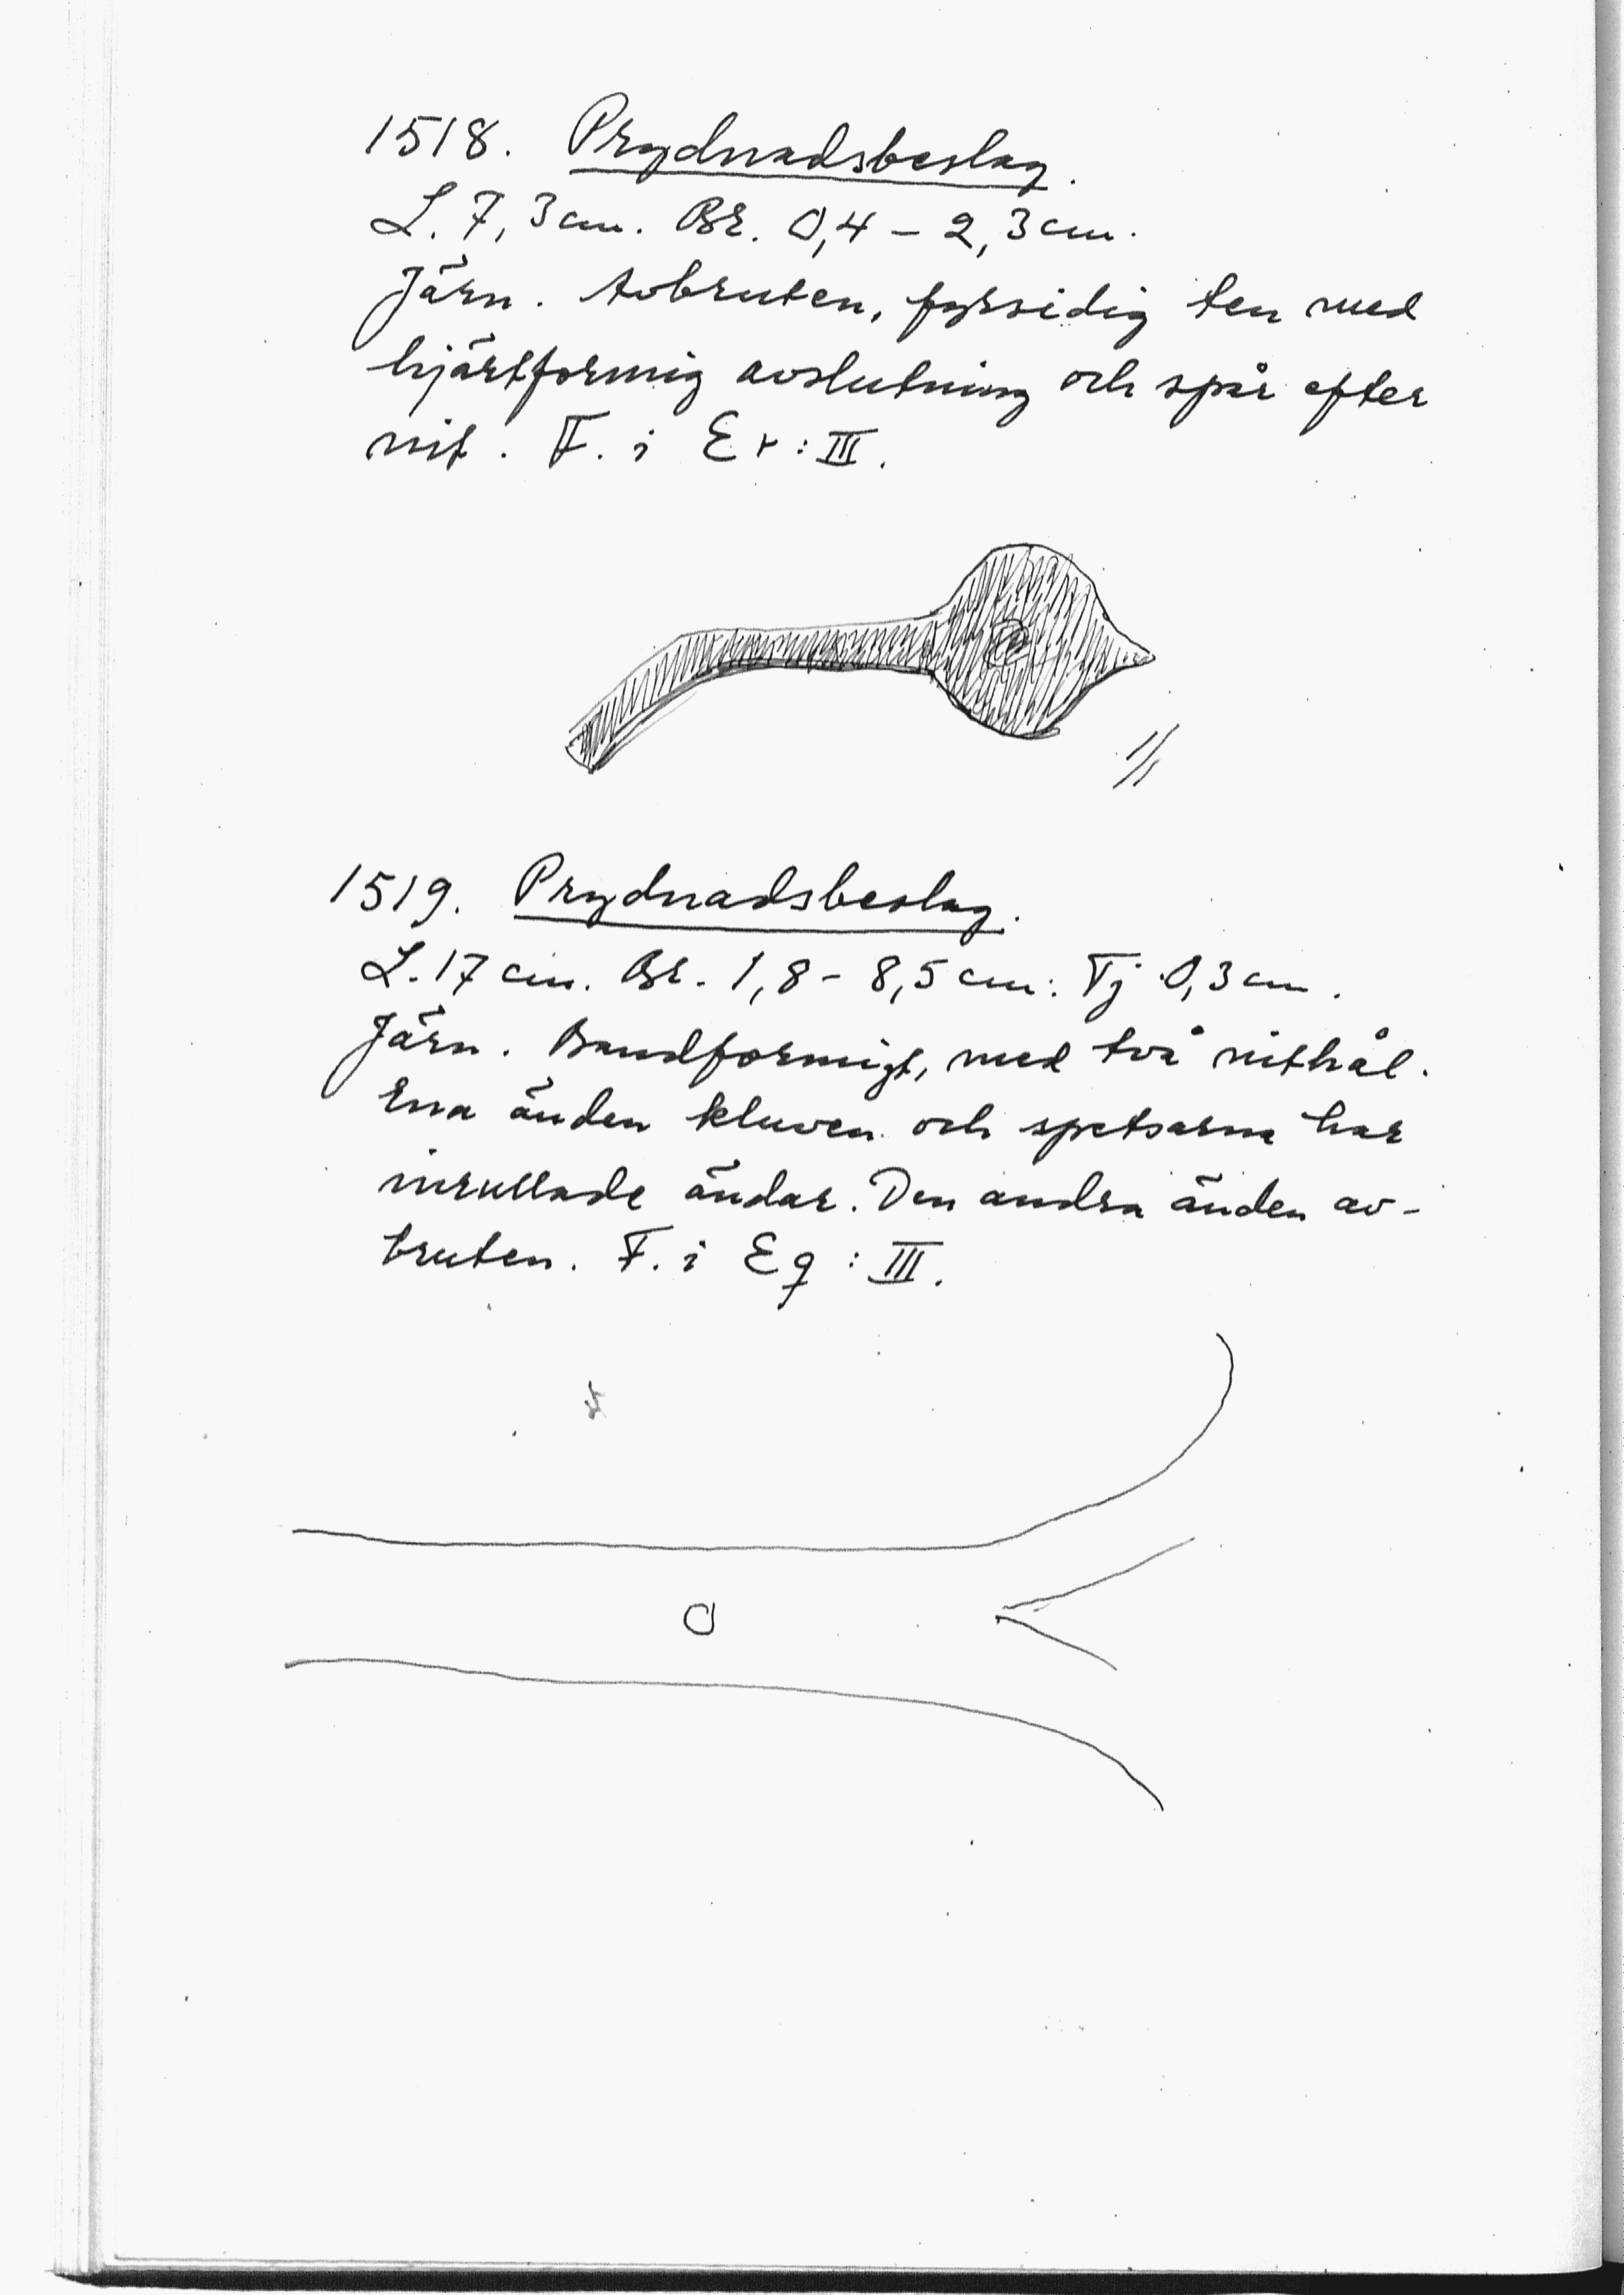 1518. Prydnadsbeslag.
L. 7,3 cm. Br. 0,4 – 2,3 cm.
Järn. Avbruten, fyrsidig ten med
hjärtformig avslutning och spår efter
nit. F. i Er:III.
1/1
1519. Prydnadsbeslag.
L. 17 cm. Br. 1,8 – 8,5 cm. Tj 0,3 cm.
Järn. Bandformigt, med två nithål.
Ena änden kluven och spetsarna har
inrullade ändar. Den andra änden av-
bruten. F. i Eq:III.